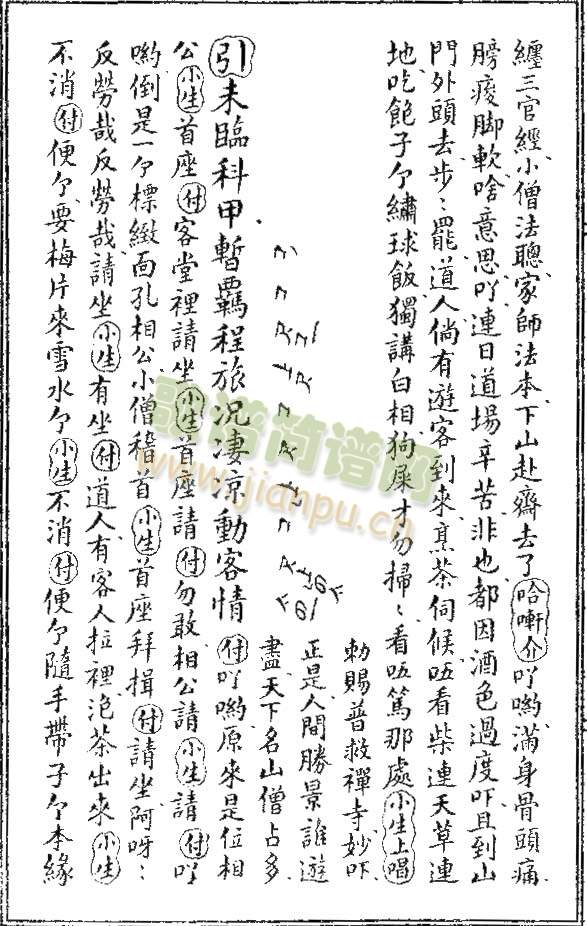 纏三官經小僧法聰家師法本下山赴齋去了哈嘶介吖喲滿身骨頭痛
膀痠脚軟啥意思吖連日道場辛苦非也都因酒色過度吓且到山
門外頭去步〻罷道人倘有遊客到來烹茶伺候唔看柴連天草連
地吃飽子个繡球飯獨講白相狗屎才勿掃〻看唔篤那處小生上唱
引未臨科甲暫羈程旅況凄涼動客情
勅賜普救禪寺妙吓
正是人間勝景誰遊
盡天下名山僧占多
付吖喲原來是位相
公小生首座付客堂裡請坐小生首座請付勿敢相公請小生請付吖
喲倒是一个標緻面孔相公小僧稽首小生首座拜揖付請坐阿呀〻
反勞哉反勞哉請坐小生有坐付道人有客人拉裡泡茶出來小生
不消付便个要梅片來雪水个小生不消付便个隨手帶子个本緣
融谱简谱网
www.jianpu.cn